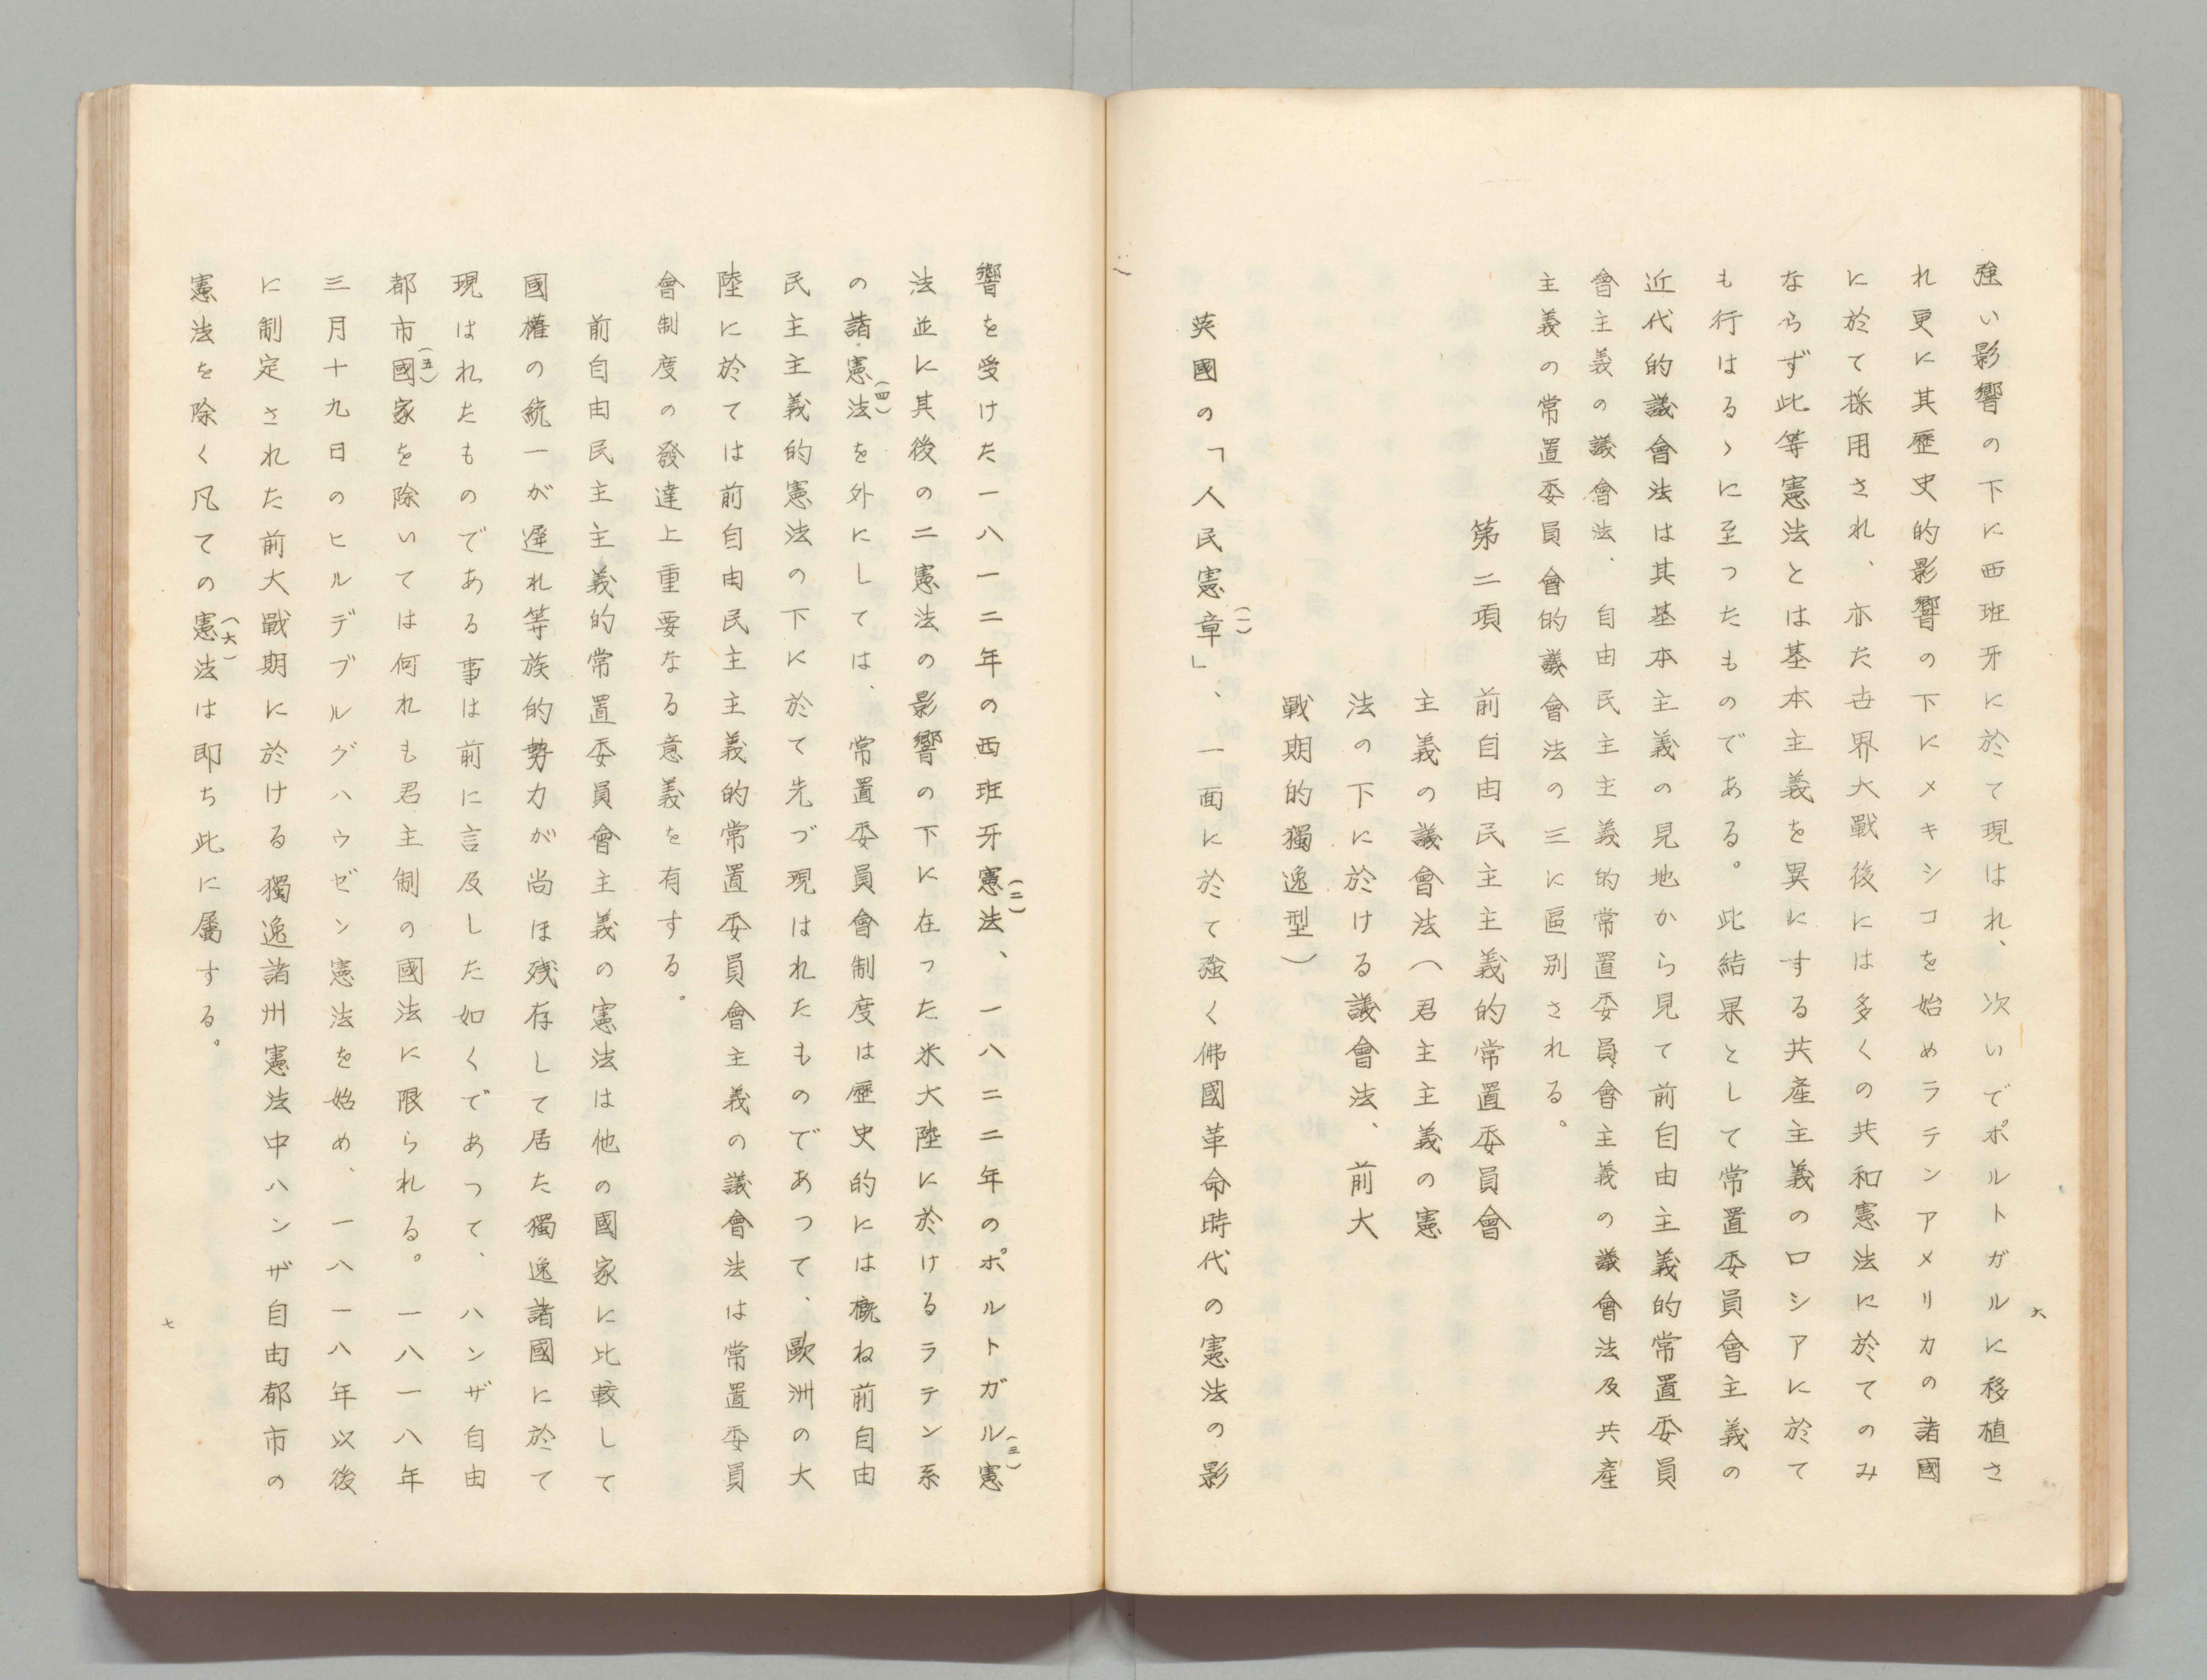 強い影響の下に西班牙に於て現はれ、次いでポルトガルに移植さ
れ更に其歷史的影響の下にメキシコを始めラテンアメリカの諸國
に於て採用され、亦た世界大戰後には多くの共和憲法に於てのみ
ならず此等憲法とは基本主義を異にする共產主義のロシアに於て
も行はるゝに至つたものである。此結果として常置委員會主義の
近代的議會法は其基本主義の見地から見て前自由主義的常置委員
會主義の議會法、自由民主主義的常置委員會主義の議會法及共產
主義の常置委員會的議會法の三に區別される。
第二項　前自由民主主義的常置委員會
主義の議會法（君主主義の憲
法の下に於ける議會法、前大
戰期的獨逸型）
英國の「人民憲章」(一)、一面に於て强く佛國革命時代の憲法の影
六
響を受けた一八一二年の西班牙憲法(二)、一八二二年のポルトガル憲(三)
法並に其後の二憲法の影響の下に在つた米大陸に於けるラテン系
の諸憲法(四)を外にしては、常置委員會制度は歷史的には概ね前自由
民主主義的憲法の下に於て先づ現はれたものであつて、歐洲の大
陸に於ては前自由民主主義的常置委員會主義の議會法は常置委員
會制度の發達上重要なる意義を有する。
前自由民主主義的常置委員會主義の憲法は他の國家に比較して
國權の統一が遲れ等族的勢力が尚ほ残存して居た獨逸諸國に於て
現はれたものである事は前に言及した如くであつて、ハンザ自由
都市國家(五)を除いては何れも君主制の國法に限られる。一八一八年
三月十九日のヒルデブルグハウゼン憲法を始め、一八一八年以後
に制定された前大戰期に於ける獨逸諸州憲法中ハンザ自由都市の
憲法を除く凡ての憲法(六)は即ち此に屬する。
七